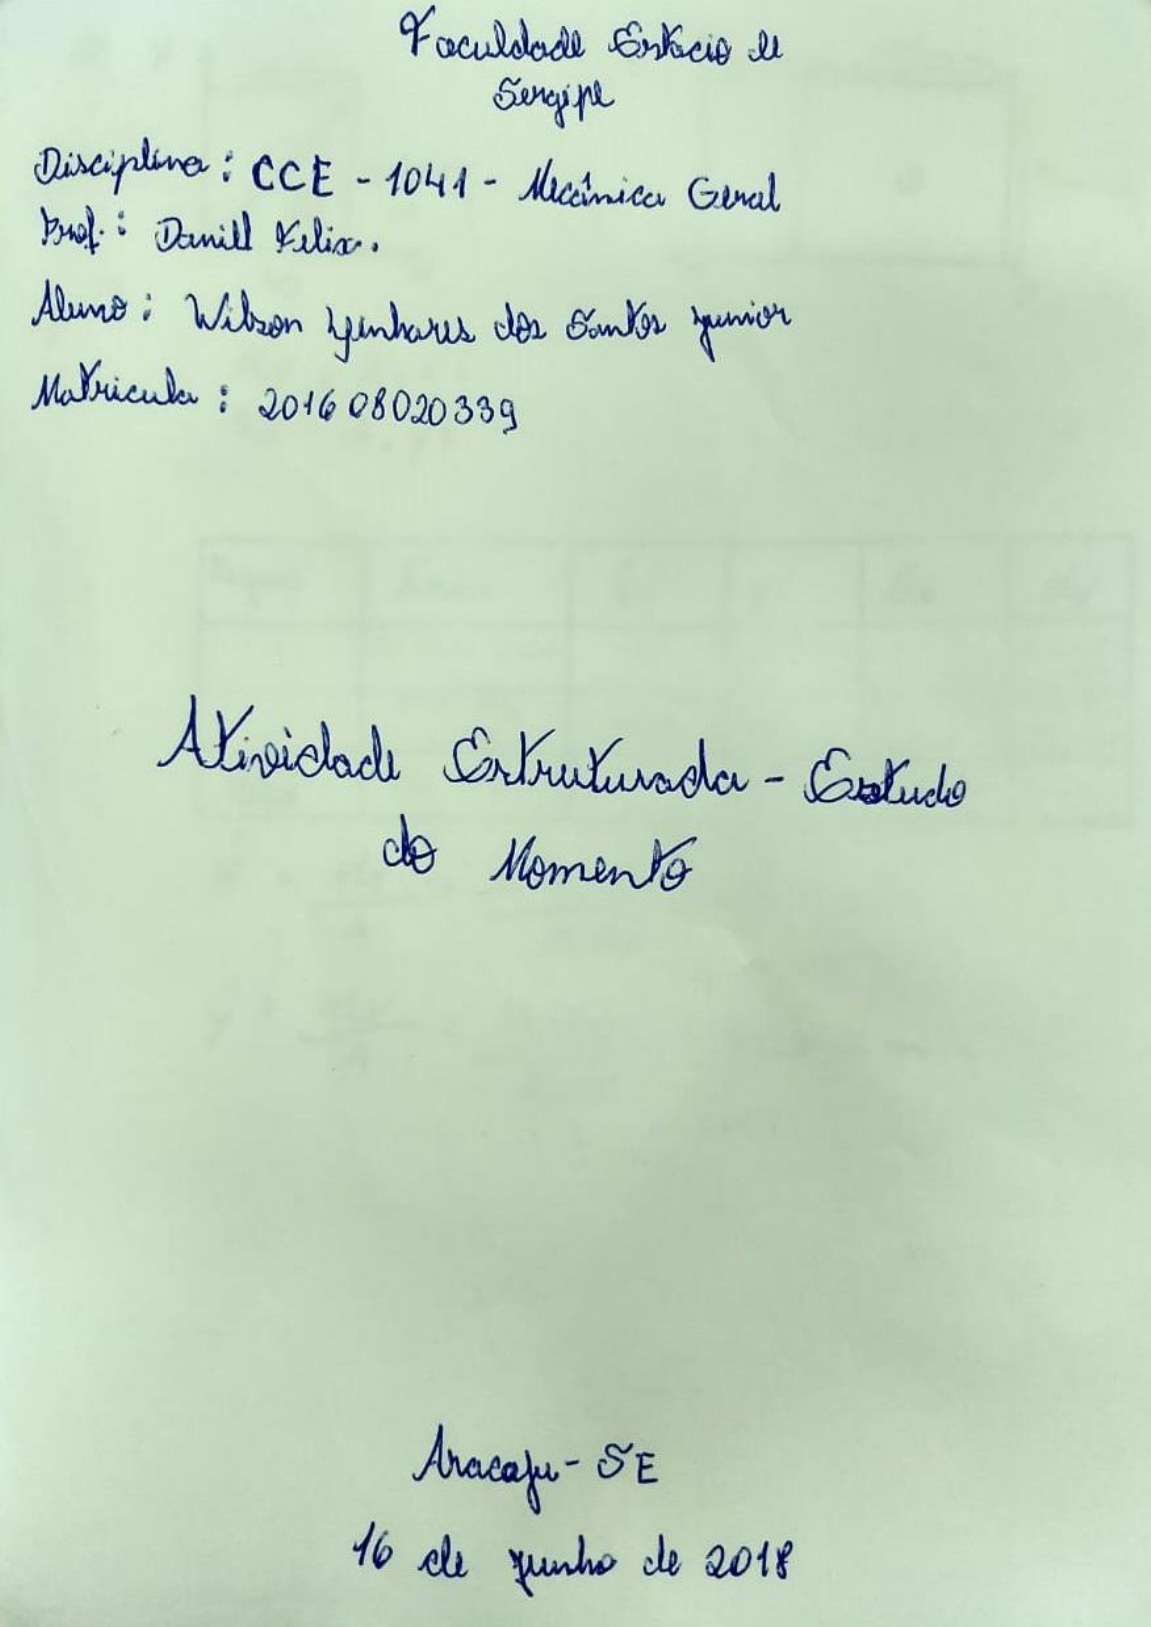 Faculdade Estácio de
Sergipe
Disciplina: CCE - 1041 - Mecânica Geral
Prof.: Daniell Felix.
Aluno: Wilson Linhares dos Santos Junior
Matricula: 201608020339
Atividade Estruturada - Estudo
do Momento
Aracaju - SE
16 de junho de 2018